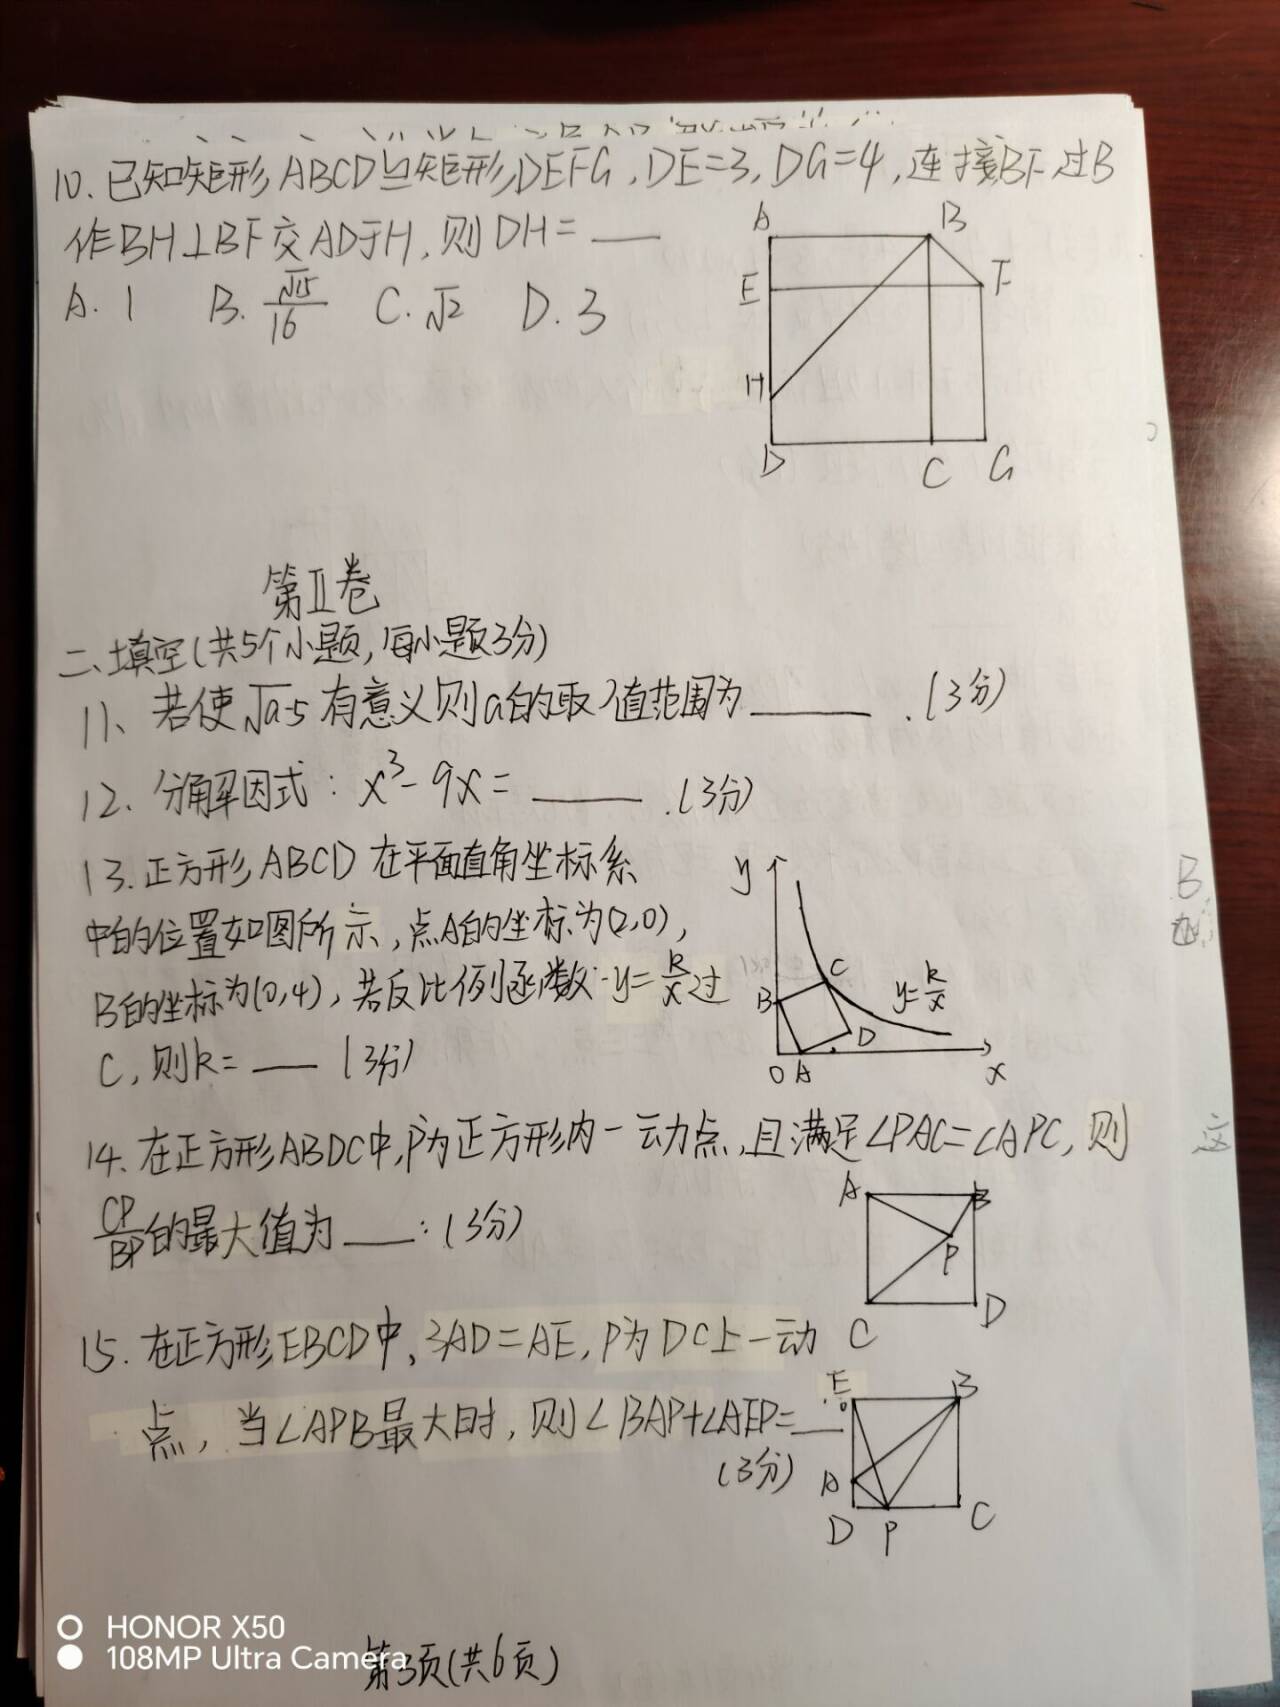 10. 已知矩形ABCD≌矩形DEFG, DE=3, DG=4, 连接BF, 过B
作BH⊥BF交AD于H, 则DH=___
A. 1 B. √15/16 C. √2 D. 3
A B
E F
H
D C G
第Ⅱ卷
二、填空(共5个小题, 每小题3分)
11、若使√a-5有意义则a的取值范围为______.(3分)
12. 分解因式: x³-9x=_____.(3分)
13. 正方形ABCD在平面直角坐标系
中的位置如图所示, 点A的坐标为(2,0),
B的坐标为(0,4), 若反比例函数y=k/x过
C, 则k=___ (3分)
y
B C y=k/x
D
O A x
14. 在正方形ABDC中, P为正方形内一动点, 且满足∠PAC=∠APC, 则
CP/BP的最大值为___.(3分)
A B
P
C D
15. 在正方形EBCD中, 3AD=AE, P为DC上一动
点, 当∠APB最大时, 则∠BAP+∠AEP=___
(3分)
E B
A
D P C
第3页(共6页)
HONOR X50
108MP Ultra Camera